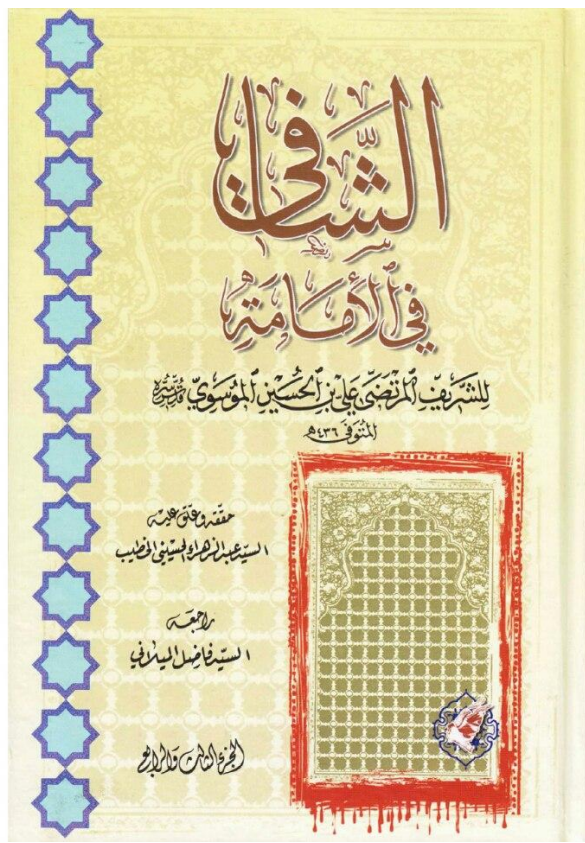 الشافي
في الإمامة
للشريف المرتضى علي بن الحسين الموسوي قدس سره
المتوفى ٤٣٦ هـ
حققه وعلق عليه
السيد عبد الزهراء الحسيني الخطيب
راجعه
السيد فاضل الميلاني
الجزء الثالث والرابع